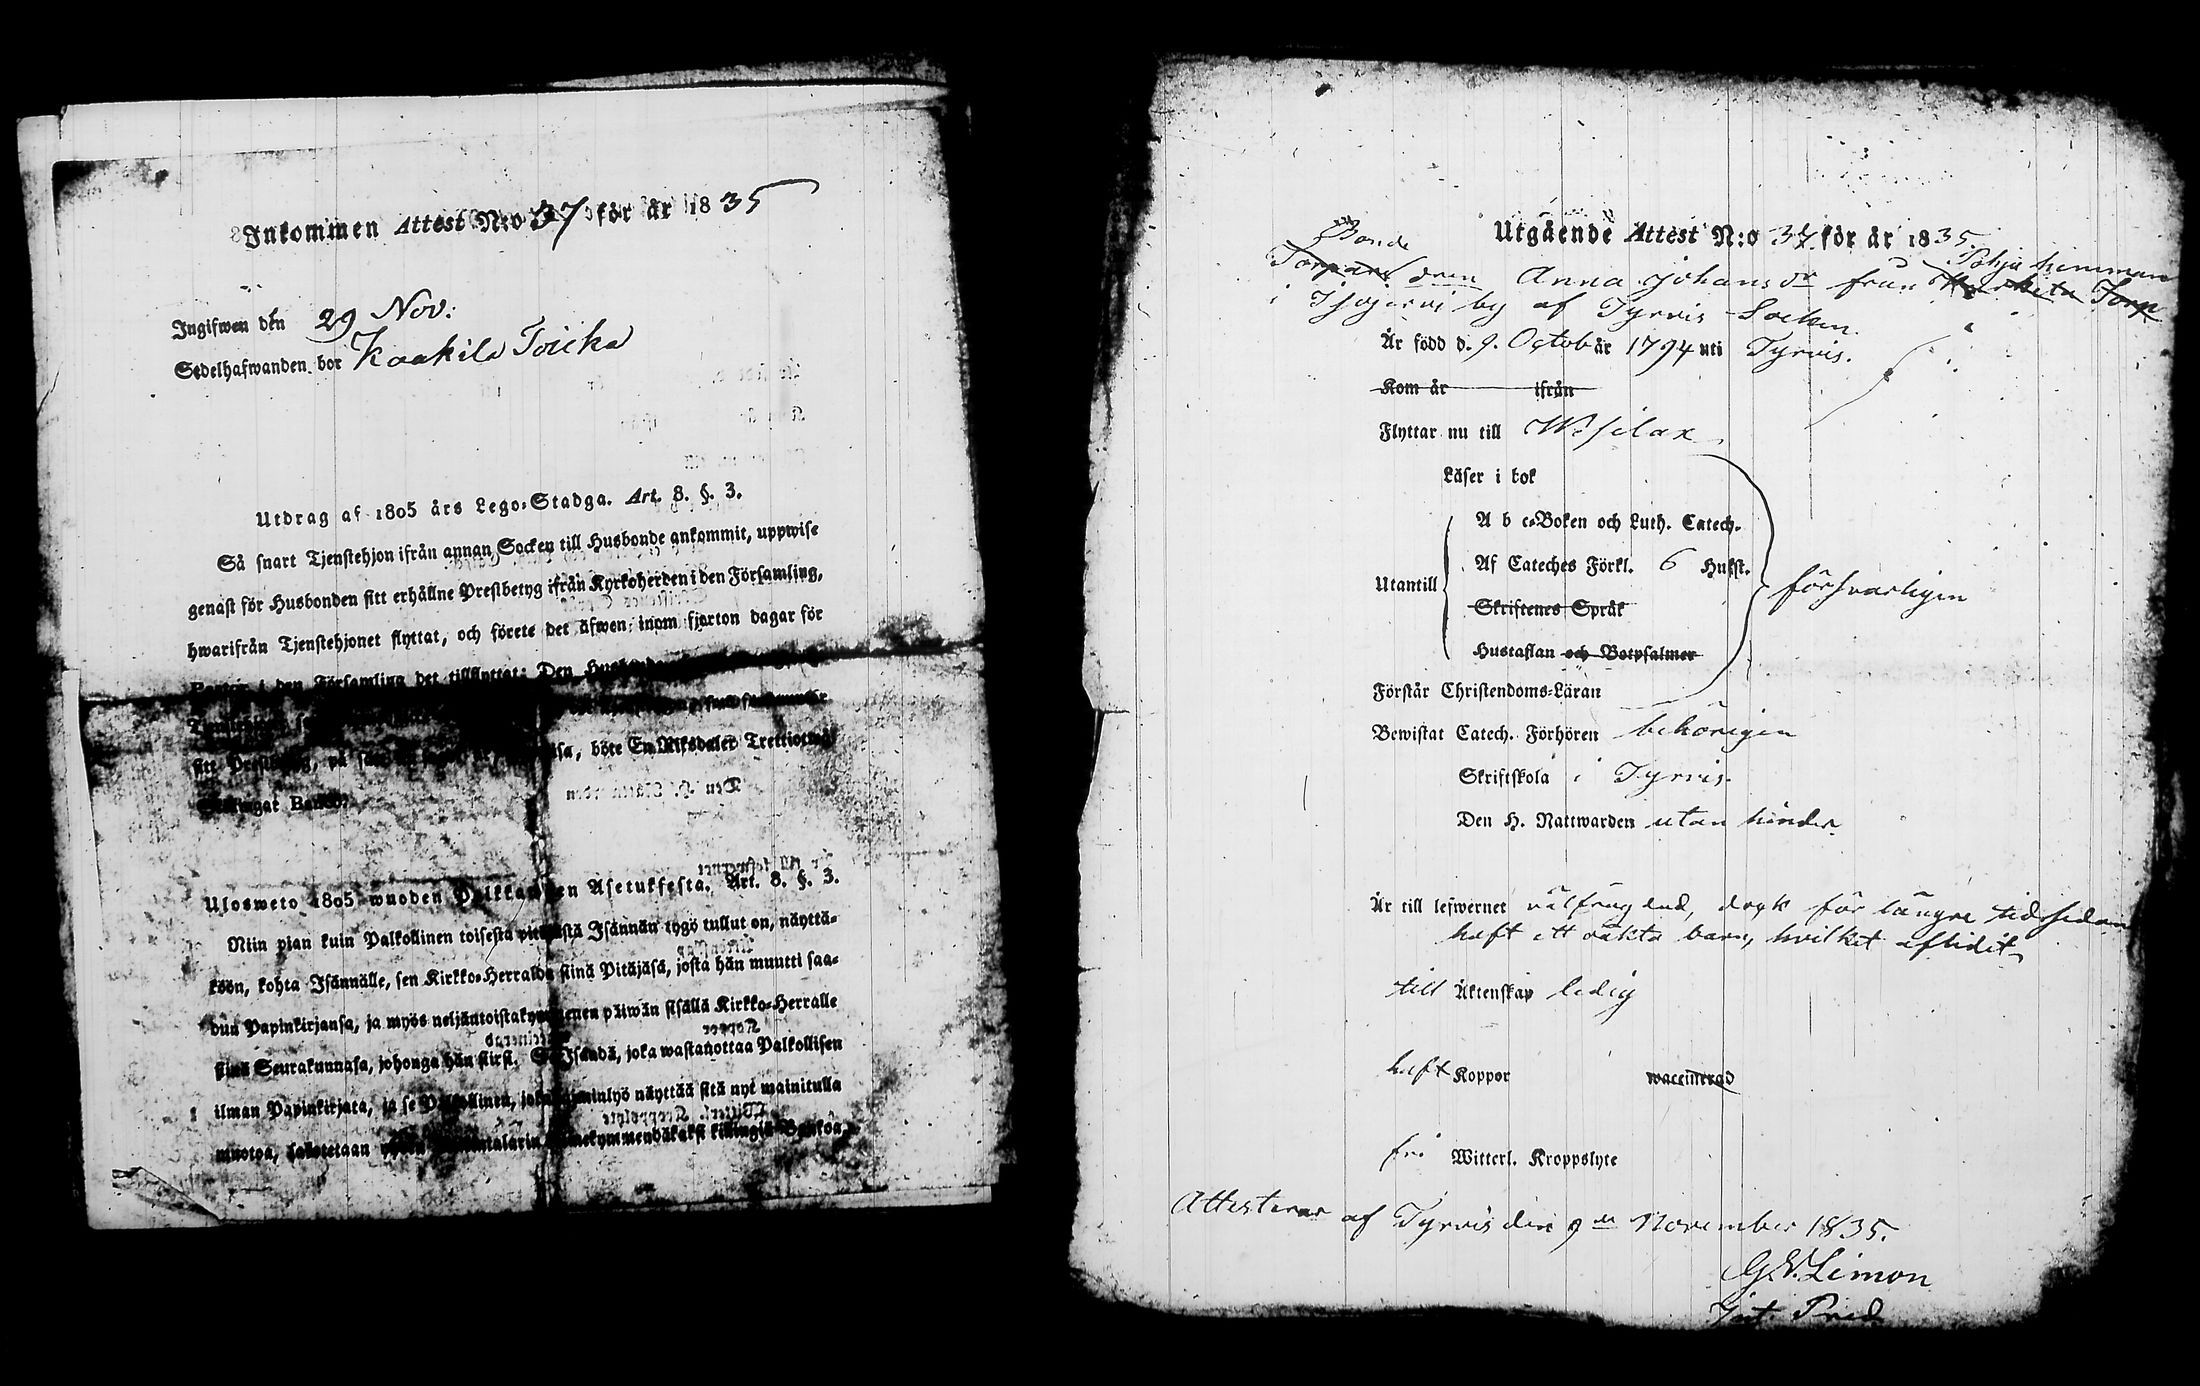 Inkommen Attest N:o 37 för år 1835
Ingifwen den 29 Nov:
Sedelhafwanden bor Kaakila Toicka
Utdrag af 1805 års Lego-Stadga. Art. 8. §. 3.
Så snart Tjenstehjon ifrån annan Socken till Husbonde ankommit, uppwise
genast för Husbonden sitt erhållne Prestbetyg ifrån Kyrkoherden i den Församling,
hwarifrån Tjenstehjonet flyttat, och förete det äfwen inom fjorton dagar för
i den Församling det tillflyttat: Den
sitt Prestbetyg, på böte En Riksdaler Trettiotwå
Skillingar Banco.
Ulosweto 1805 wuoden Palkkawäen Asetuksesta. Art. 8. §. 3.
Niin pian kuin Palkollinen toisesta pitäjästä Isännän tygö tullut on, näyttä-
köön, kohta Isännälle, sen Kirkko-Herralda siinä Pitäjäsä, josta hän muutti saa-
dun Papinkirjansa, ja myös neljäntoistakymmenen päiwän sisällä Kirkko-Herralle
siinä Seurakunnasa, johonga hän siirsi. Se Isändä, joka wastanottaa Palkollisen
ilman Papinkirjata, ja se Palkollinen, joka laiminlyö näyttää sitä nyt mainitulla
muotoa, sakotetaan killingiä Bankoa.
Utgående Attest N:o 37 för år 1835
Bonde Pohja hemman
Torpare dren Anna Johansdr från Torp
i by af Tyrvis Socken.
Är född d. 9. October år 1794 uti Tyrvis.
Kom år ifrån
Flyttar nu till Wesilax
Läser i bok
A b c-Boken och Luth. Catech.
Af Cateches Förkl. 6 Hufst.
Utantill försvarligen
Skriftenes Språk
Hustaflan och Botpsalmer
Förstår Christendoms-Läran
Bewistat Catech. Förhören behörigen
Skriftskola i Tyrvis
Den H. Nattwarden utan hinder
Är till lefwernet välfrägdad, dock för längre tid sedan
haft ett oäkta barn, hvilket aflidit
till Äktenskap ledig
haft Koppor waccinerad
fri Witterl. Kroppslyte
Attesterar af Tyrvis den 9de November 1835.
G.V. Limon